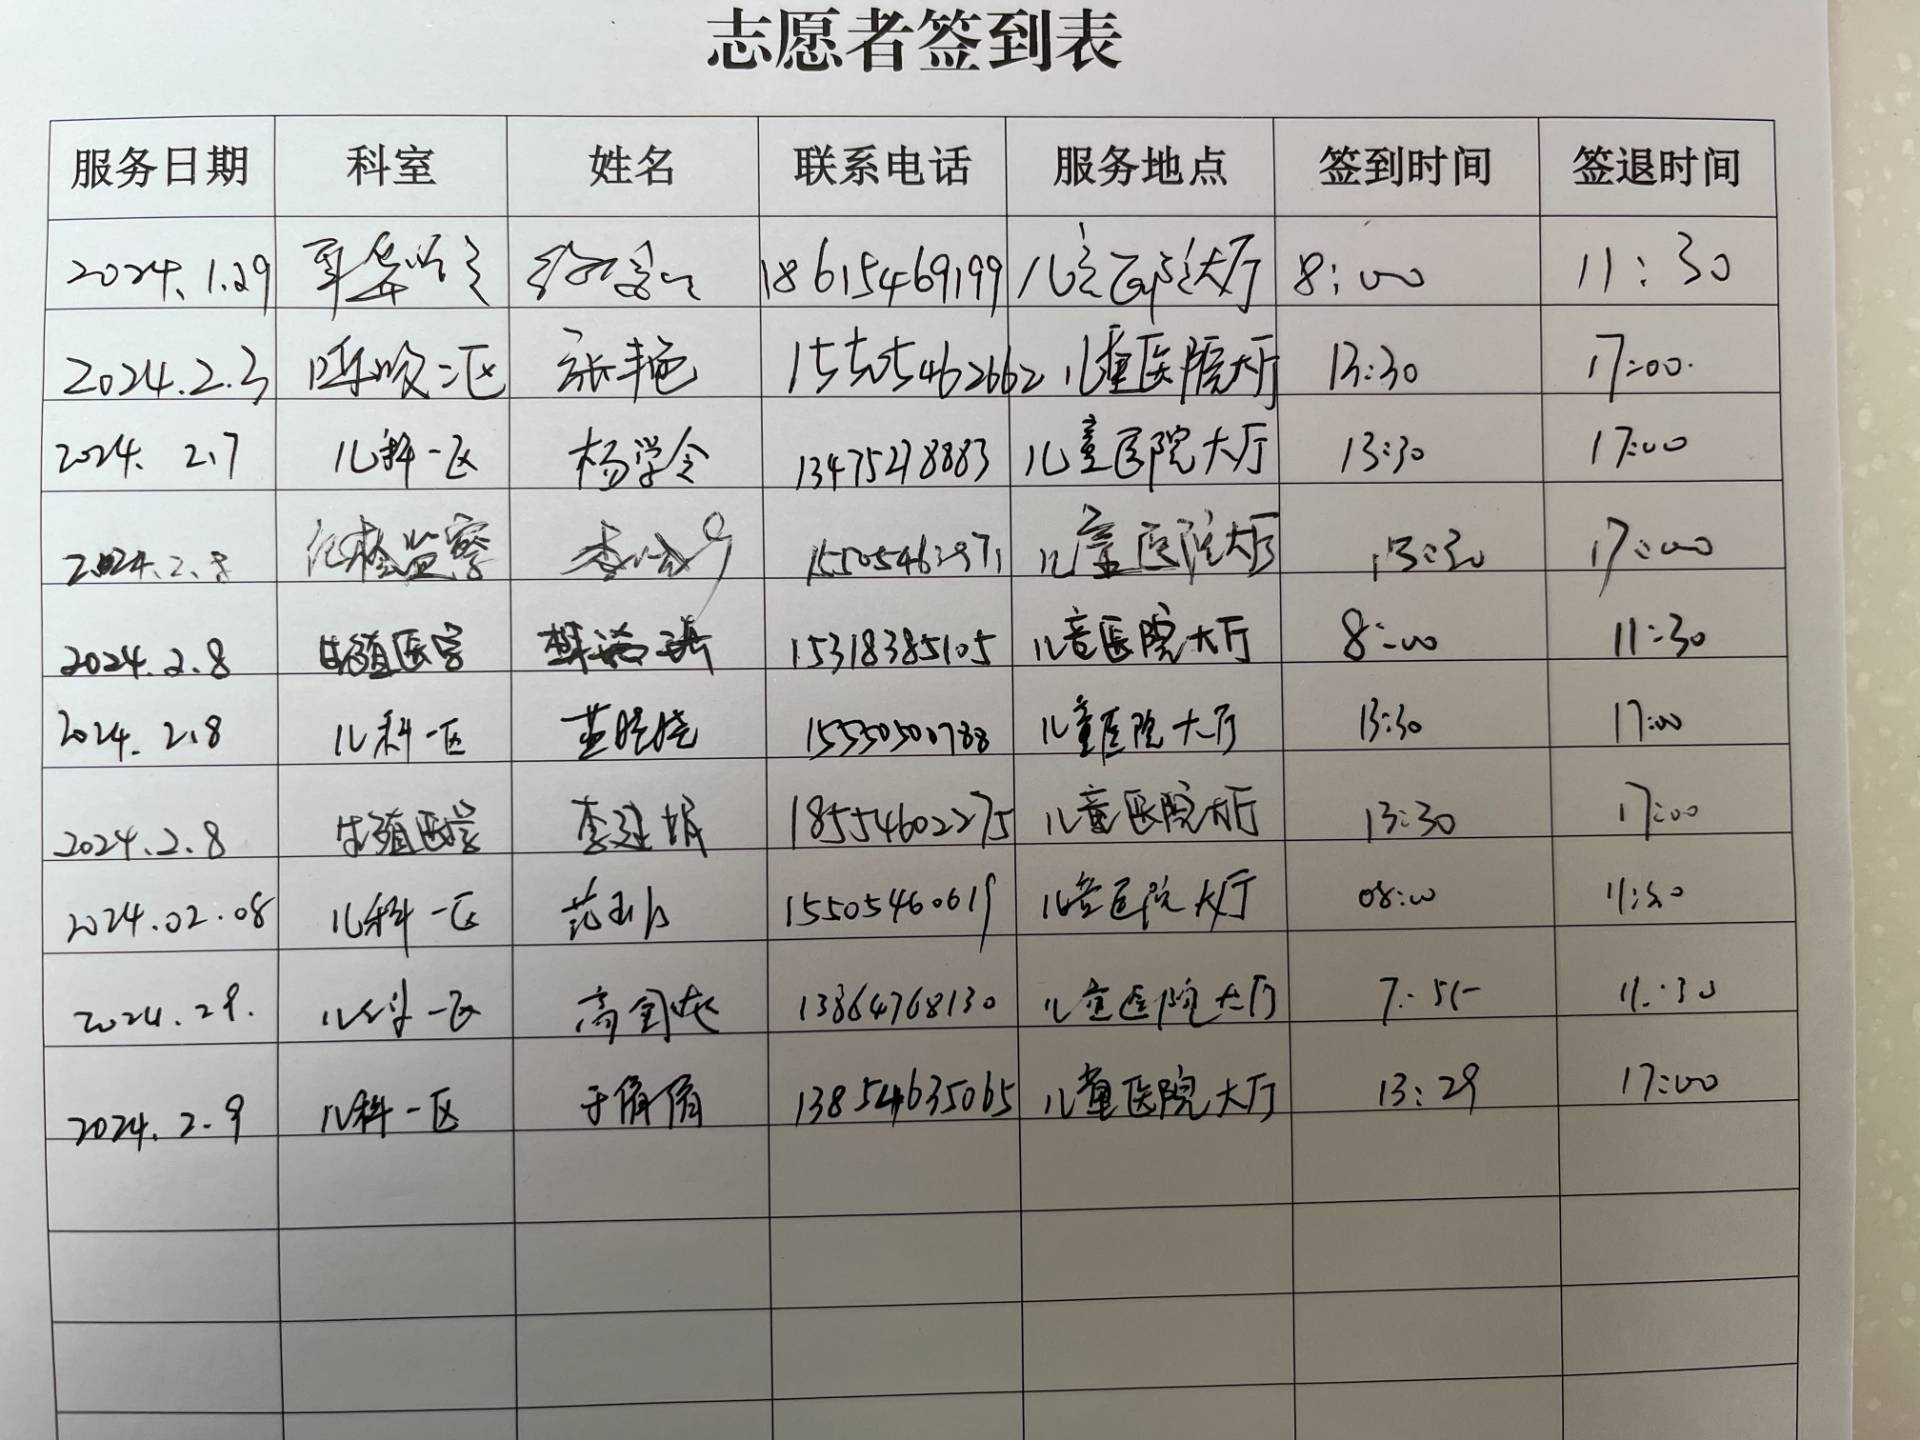 志愿者签到表
服务日期 科室 姓名 联系电话 服务地点 签到时间 签退时间
2024.1.29 18615469199 儿童医院大厅 8:00 11:30
2024.2.3 呼吸二区 张艳 15505462662 儿童医院大厅 13:30 17:00
2024.2.7 儿科一区 杨学令 13475218883 儿童医院大厅 13:30 17:00
2024.2.8 纪检监察 儿童医院大厅 13:30 17:00
2024.2.8 生殖医学 15318385105 儿童医院大厅 8:00 11:30
2024.2.8 儿科一区 15550500788 儿童医院大厅 13:30 17:00
2024.2.8 生殖医学 李建娟 18554602275 儿童医院大厅 13:30 17:00
2024.02.08 儿科一区 15505460619 儿童医院大厅 08:00 11:30
2024.2.9. 儿科一区 13864768130 儿童医院大厅 7:55 11:30
2024.2.9 儿科一区 于倩倩 13854635065 儿童医院大厅 13:29 17:00